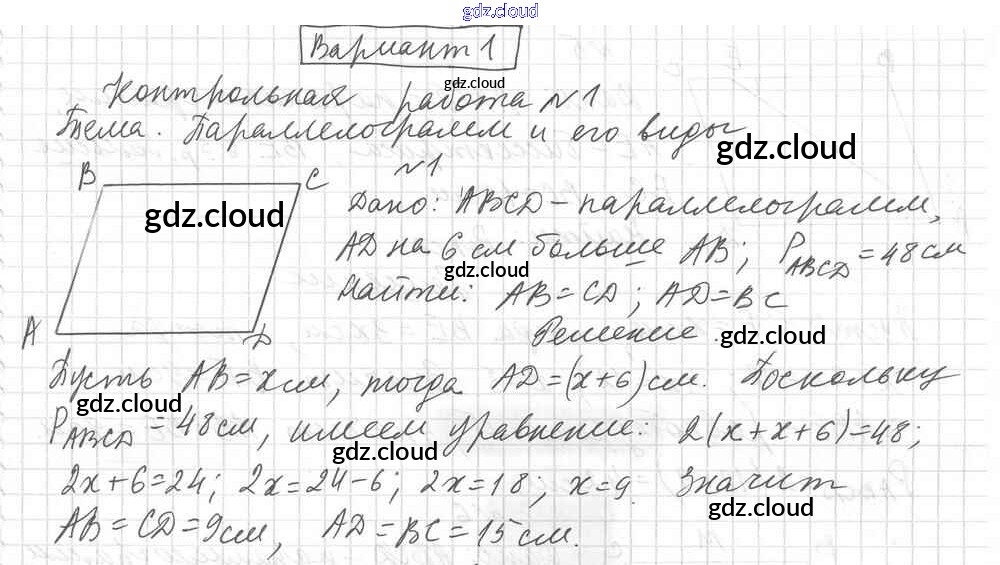 gdz.cloud
Вариант 1
gdz.cloud
Контрольная работа №1
Тема. Параллелограмм и его виды
gdz.cloud
№1
B C
gdz.cloud
Дано: ABCD – параллелограмм,
AD на 6 см больше AB; P_ABCD = 48 см
gdz.cloud
Найти: AB = CD; AD = BC
A D
Решение.
gdz.cloud
Пусть AB = x см, тогда AD = (x+6) см. Поскольку
gdz.cloud
P_ABCD = 48 см, имеем уравнение: 2(x+x+6)=48;
gdz.cloud
2x+6=24; 2x=24-6; 2x=18; x=9. Значит
gdz.cloud
AB = CD = 9 см, AD = BC = 15 см.